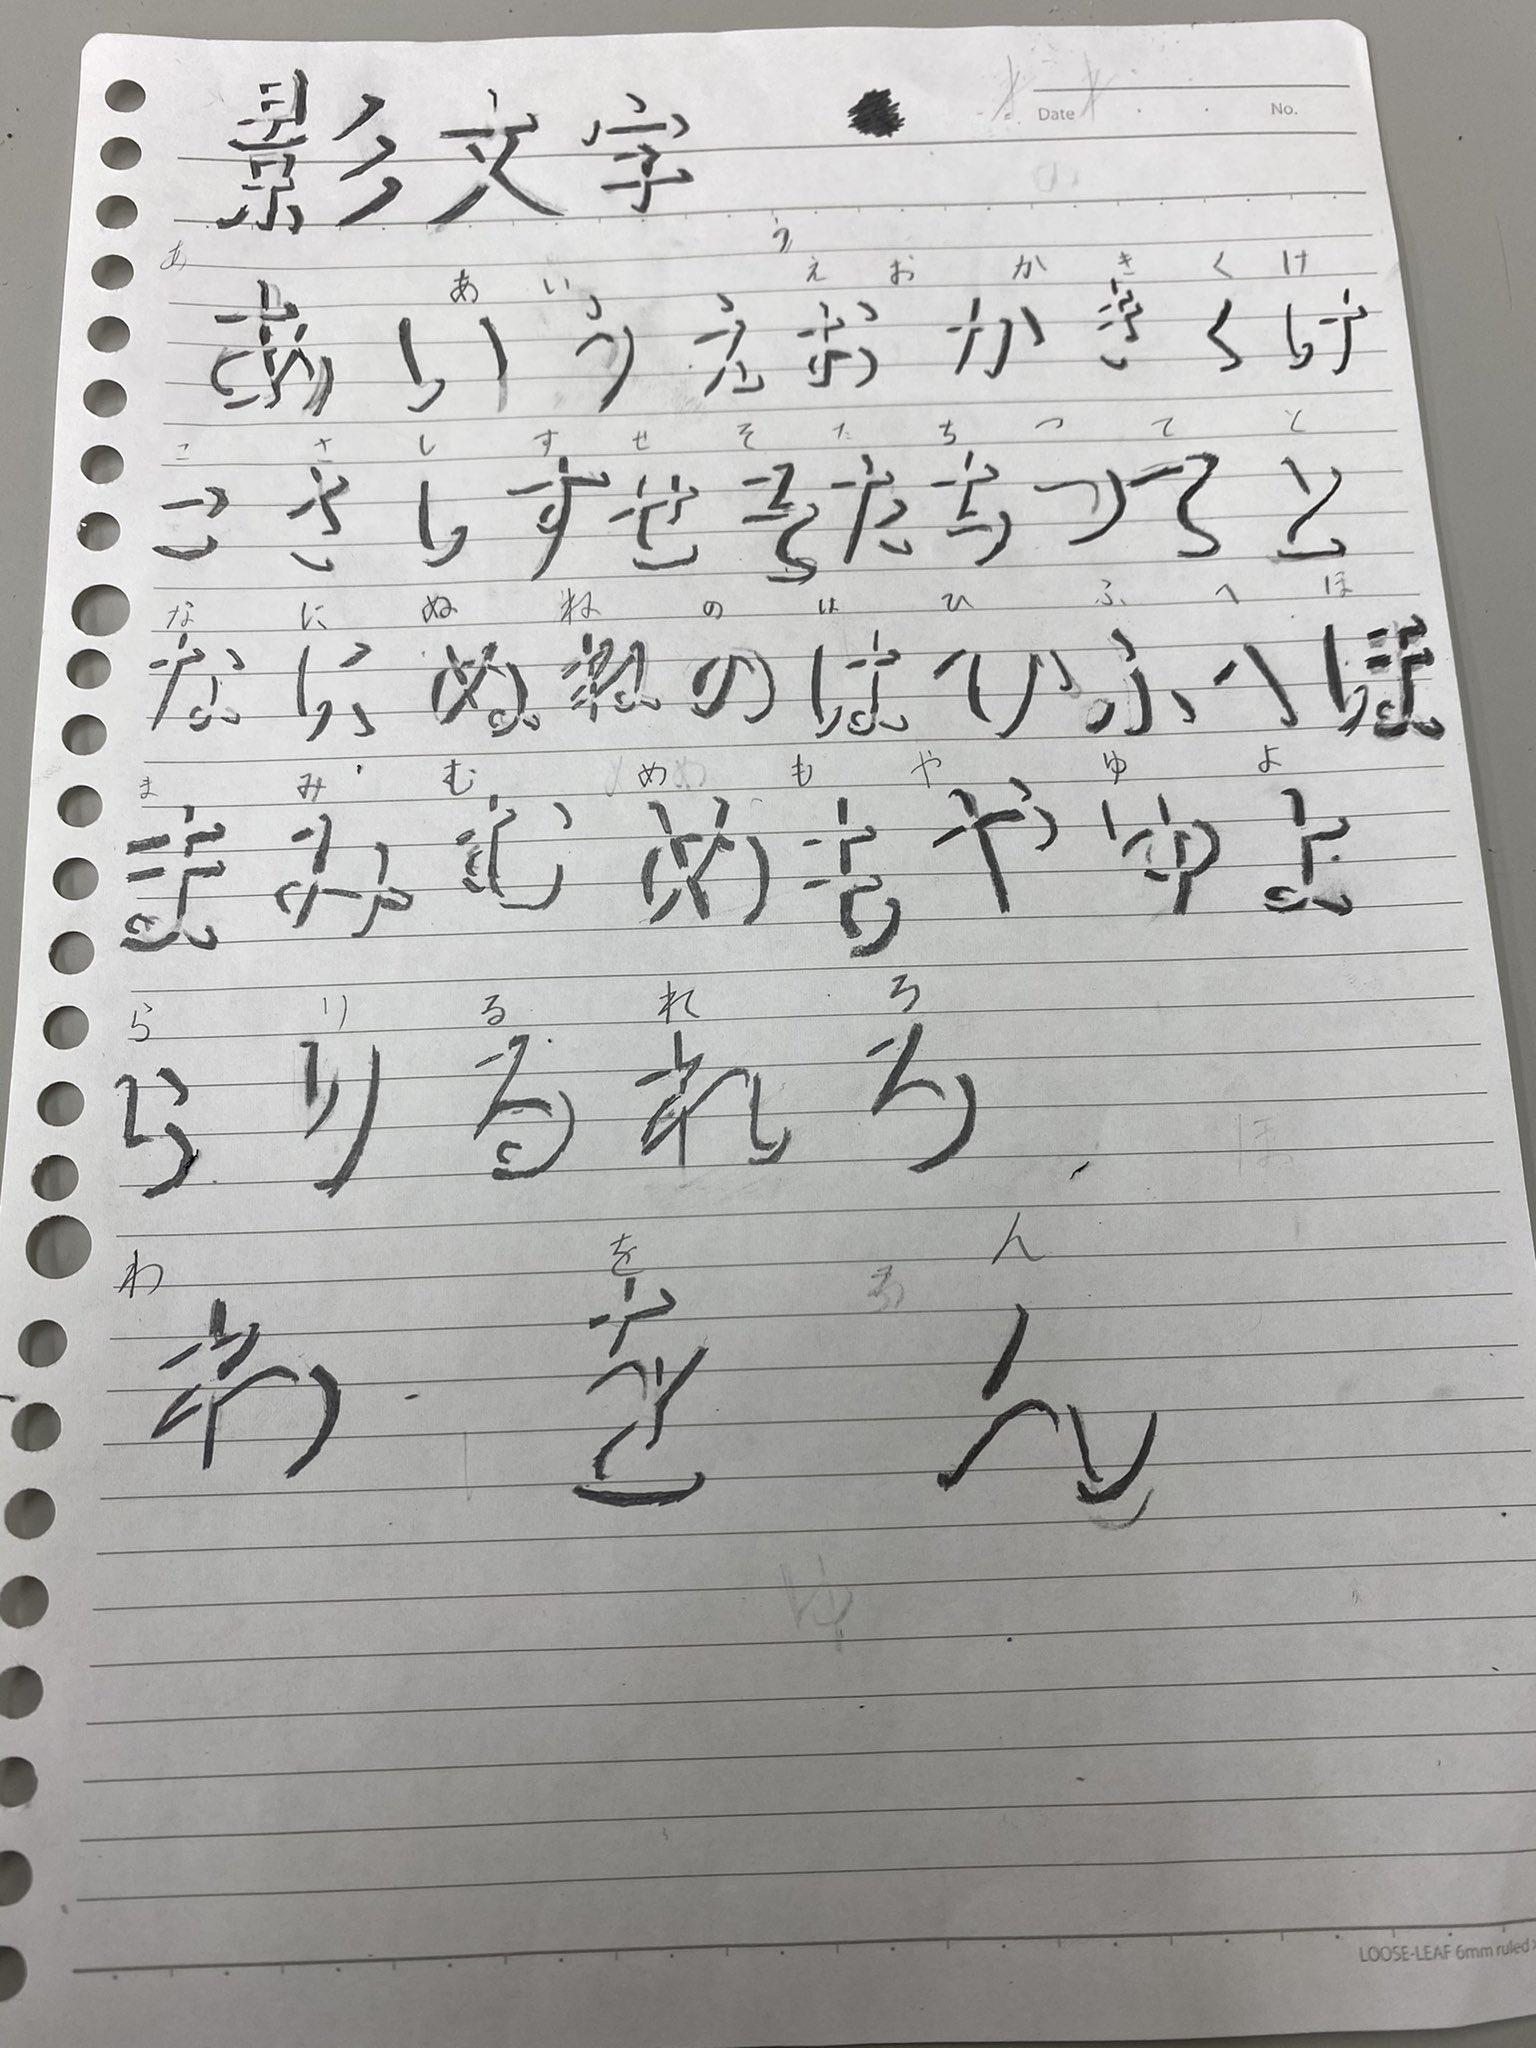 影文字
Date No.
あ あ い う え お か き く け
あ い う え お か き く け
こ さ し す せ そ た ち つ て と
こ さ し す せ そ た ち つ て と
な に ぬ ね の は ひ ふ へ ほ
な に ぬ ね の は ひ ふ へ ほ
ま み む め も や ゆ よ
ま み む め も や ゆ よ
ら り る れ ろ
ら り る れ ろ
わ を ん
わ を ん
LOOSE-LEAF 6mm ruled